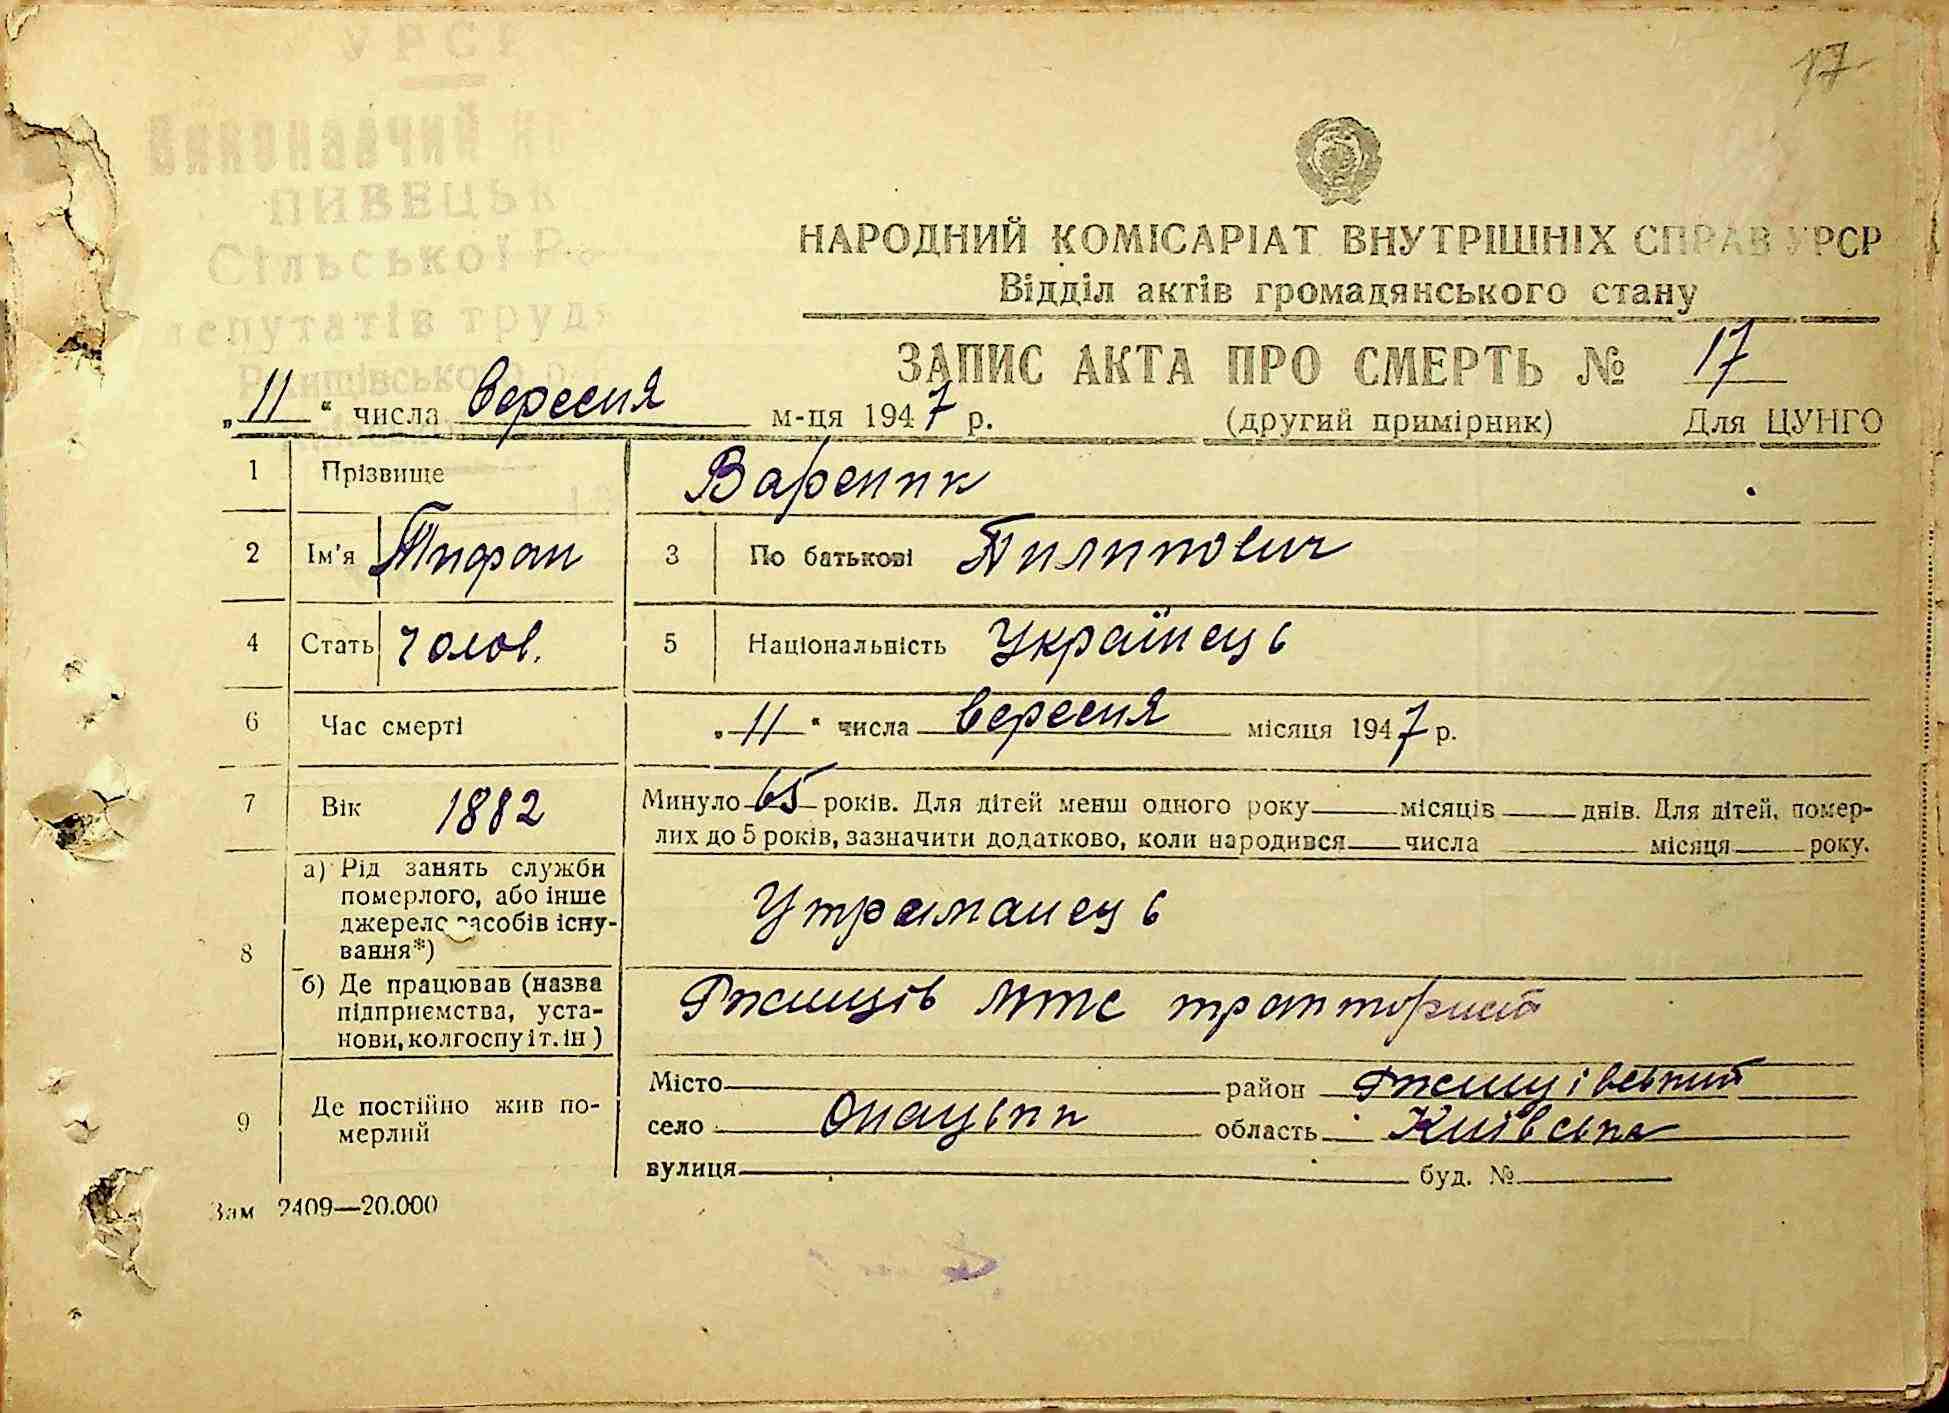 17
УРСР
Виконавчий
ПИВЕЦЬК
Сільської
депутатів труд
НАРОДНИЙ КОМІСАРІАТ ВНУТРІШНІХ СПРАВ УРСР
Відділ актів громадянського стану
ЗАПИС АКТА ПРО СМЕРТЬ № 17
„11“ числа вересня м-ця 1947 р. (другий примірник) Для ЦУНГО
1 Прізвище Вареник
2 Ім'я Тифан 3 По батькові Пилипович
4 Стать чолов. 5 Національність Українець
6 Час смерті „11“ числа вересня місяця 1947 р.
7 Вік 1882 Минуло 65 років. Для дітей менш одного року місяців днів. Для дітей, помер-
лих до 5 років, зазначити додатково, коли народився числа місяця року.
8 а) Рід занять служби
померлого, або інше
джерело засобів існу-
вання*)
Утриманець
б) Де працював (назва
підприємства, уста-
нови, колгоспу і т. ін)
Ржищів МТС тракторист
9 Де постійно жив по-
мерлий
Місто район Ржищівський
село Онацьки область Київська
вулиця буд. №
Зам 2409—20.000